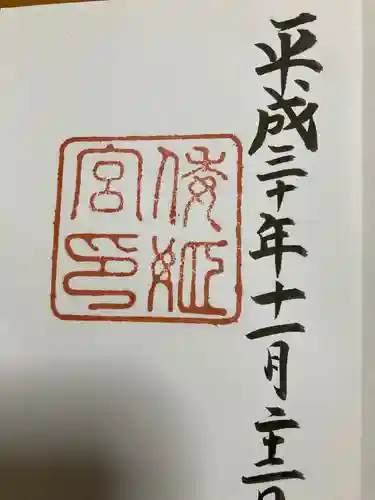 平成三十年十一月二十二日
倭姫
宮印